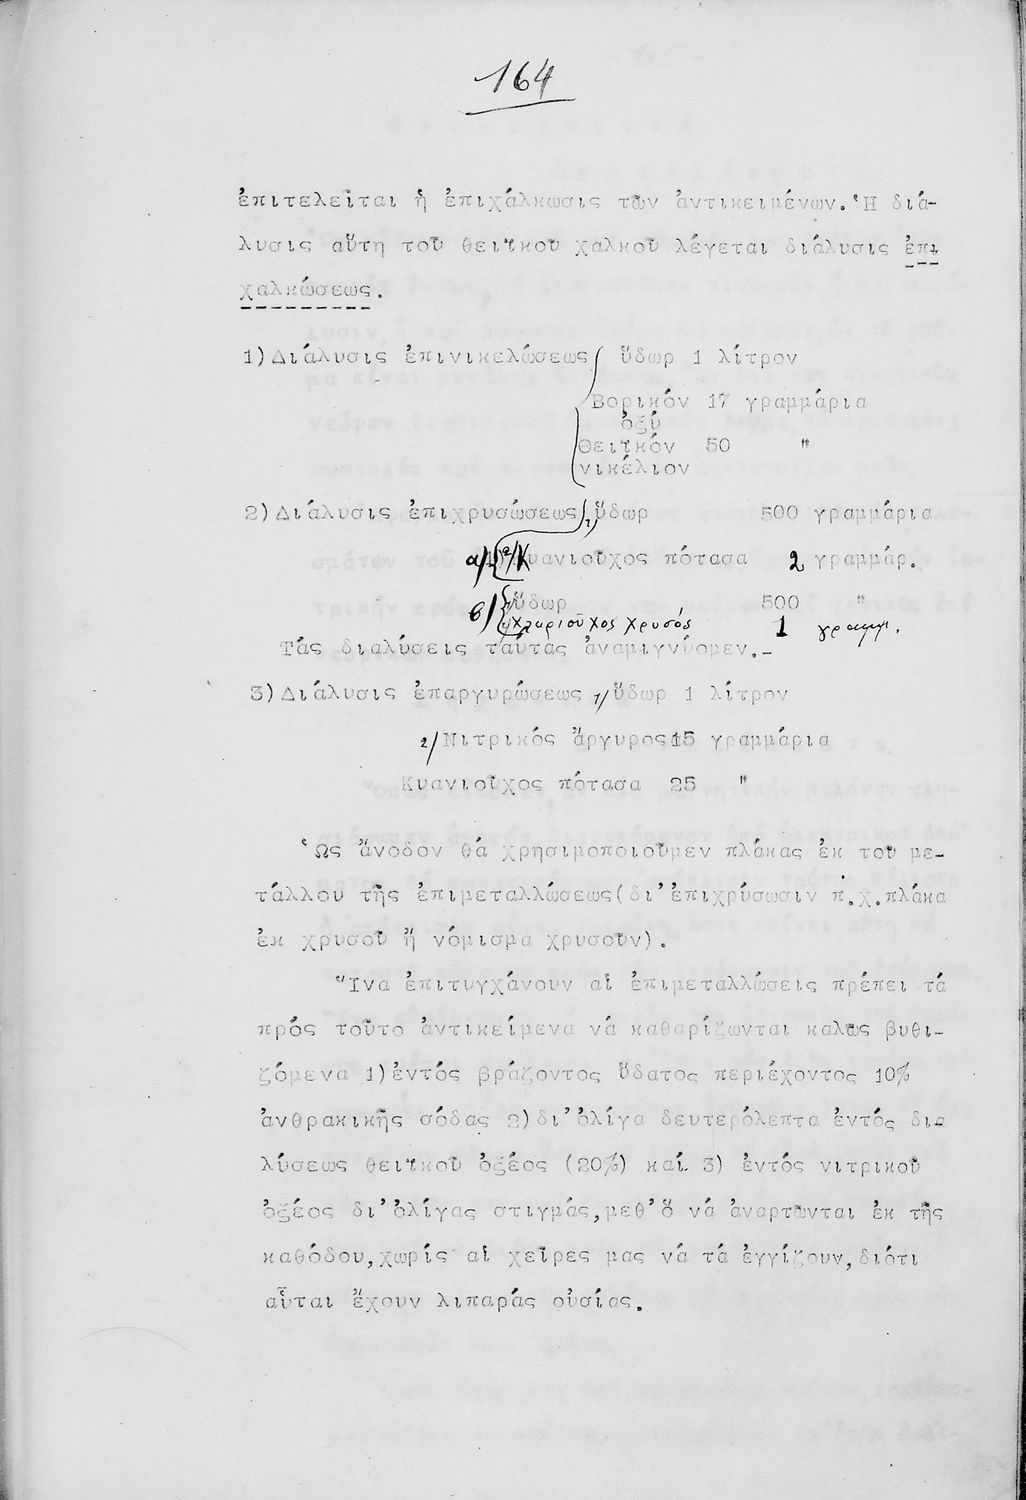 164
ἐπιτελεῖται ἡ ἐπιχάλκωσις τῶν ἀντικειμένων. Ἡ διά-
λυσις αὕτη τοῦ θειϊκοῦ χαλκοῦ λέγεται διάλυσις ἐπι
χαλκώσεως.
1)Διάλυσις ἐπινικελώσεως ὕδωρ 1 λίτρον
Βορικόν 17 γραμμάρια
ὀξύ
Θειϊκόν 50 "
νικέλιον
2)Διάλυσις ἐπιχρυσώσεως 1/ὕδωρ 500 γραμμάρια
α/ 2/Κυανιοῦχος πότασα 2 γραμμάρ.
β/ ὕδωρ 500 "
χλωριοῦχος χρυσός 1 γραμμ.
Τάς διαλύσεις ταύτας ἀναμιγνύομεν.-
3)Διάλυσις ἐπαργυρώσεως 1/ὕδωρ 1 λίτρον
2/Νιτρικός ἄργυρος 15 γραμμάρια
Κυανιοῦχος πότασα 25 "
Ὡς ἄνοδον θά χρησιμοποιοῦμεν πλάκας ἐκ τοῦ με-
τάλλου τῆς ἐπιμεταλλώσεως(δι'ἐπιχρύσωσιν π.χ.πλάκα
ἐκ χρυσοῦ ἤ νόμισμα χρυσοῦν).
Ἵνα ἐπιτυγχάνουν αἱ ἐπιμεταλλώσεις πρέπει τά
πρός τοῦτο ἀντικείμενα νά καθαρίζωνται καλῶς βυθι-
ζόμενα 1)ἐντός βράζοντος ὕδατος περιέχοντος 10%
ἀνθρακικῆς σόδας 2)δι'ὀλίγα δευτερόλεπτα ἐντός δια
λύσεως θειϊκοῦ ὀξέος (20%) καί 3) ἐντός νιτρικοῦ
ὀξέος δι'ὀλίγας στιγμάς,μεθ'ὅ νά ἀναρτῶνται ἐκ τῆς
καθόδου,χωρίς αἱ χεῖρες μας νά τά ἐγγίζουν,διότι
αὗται ἔχουν λιπαράς οὐσίας.